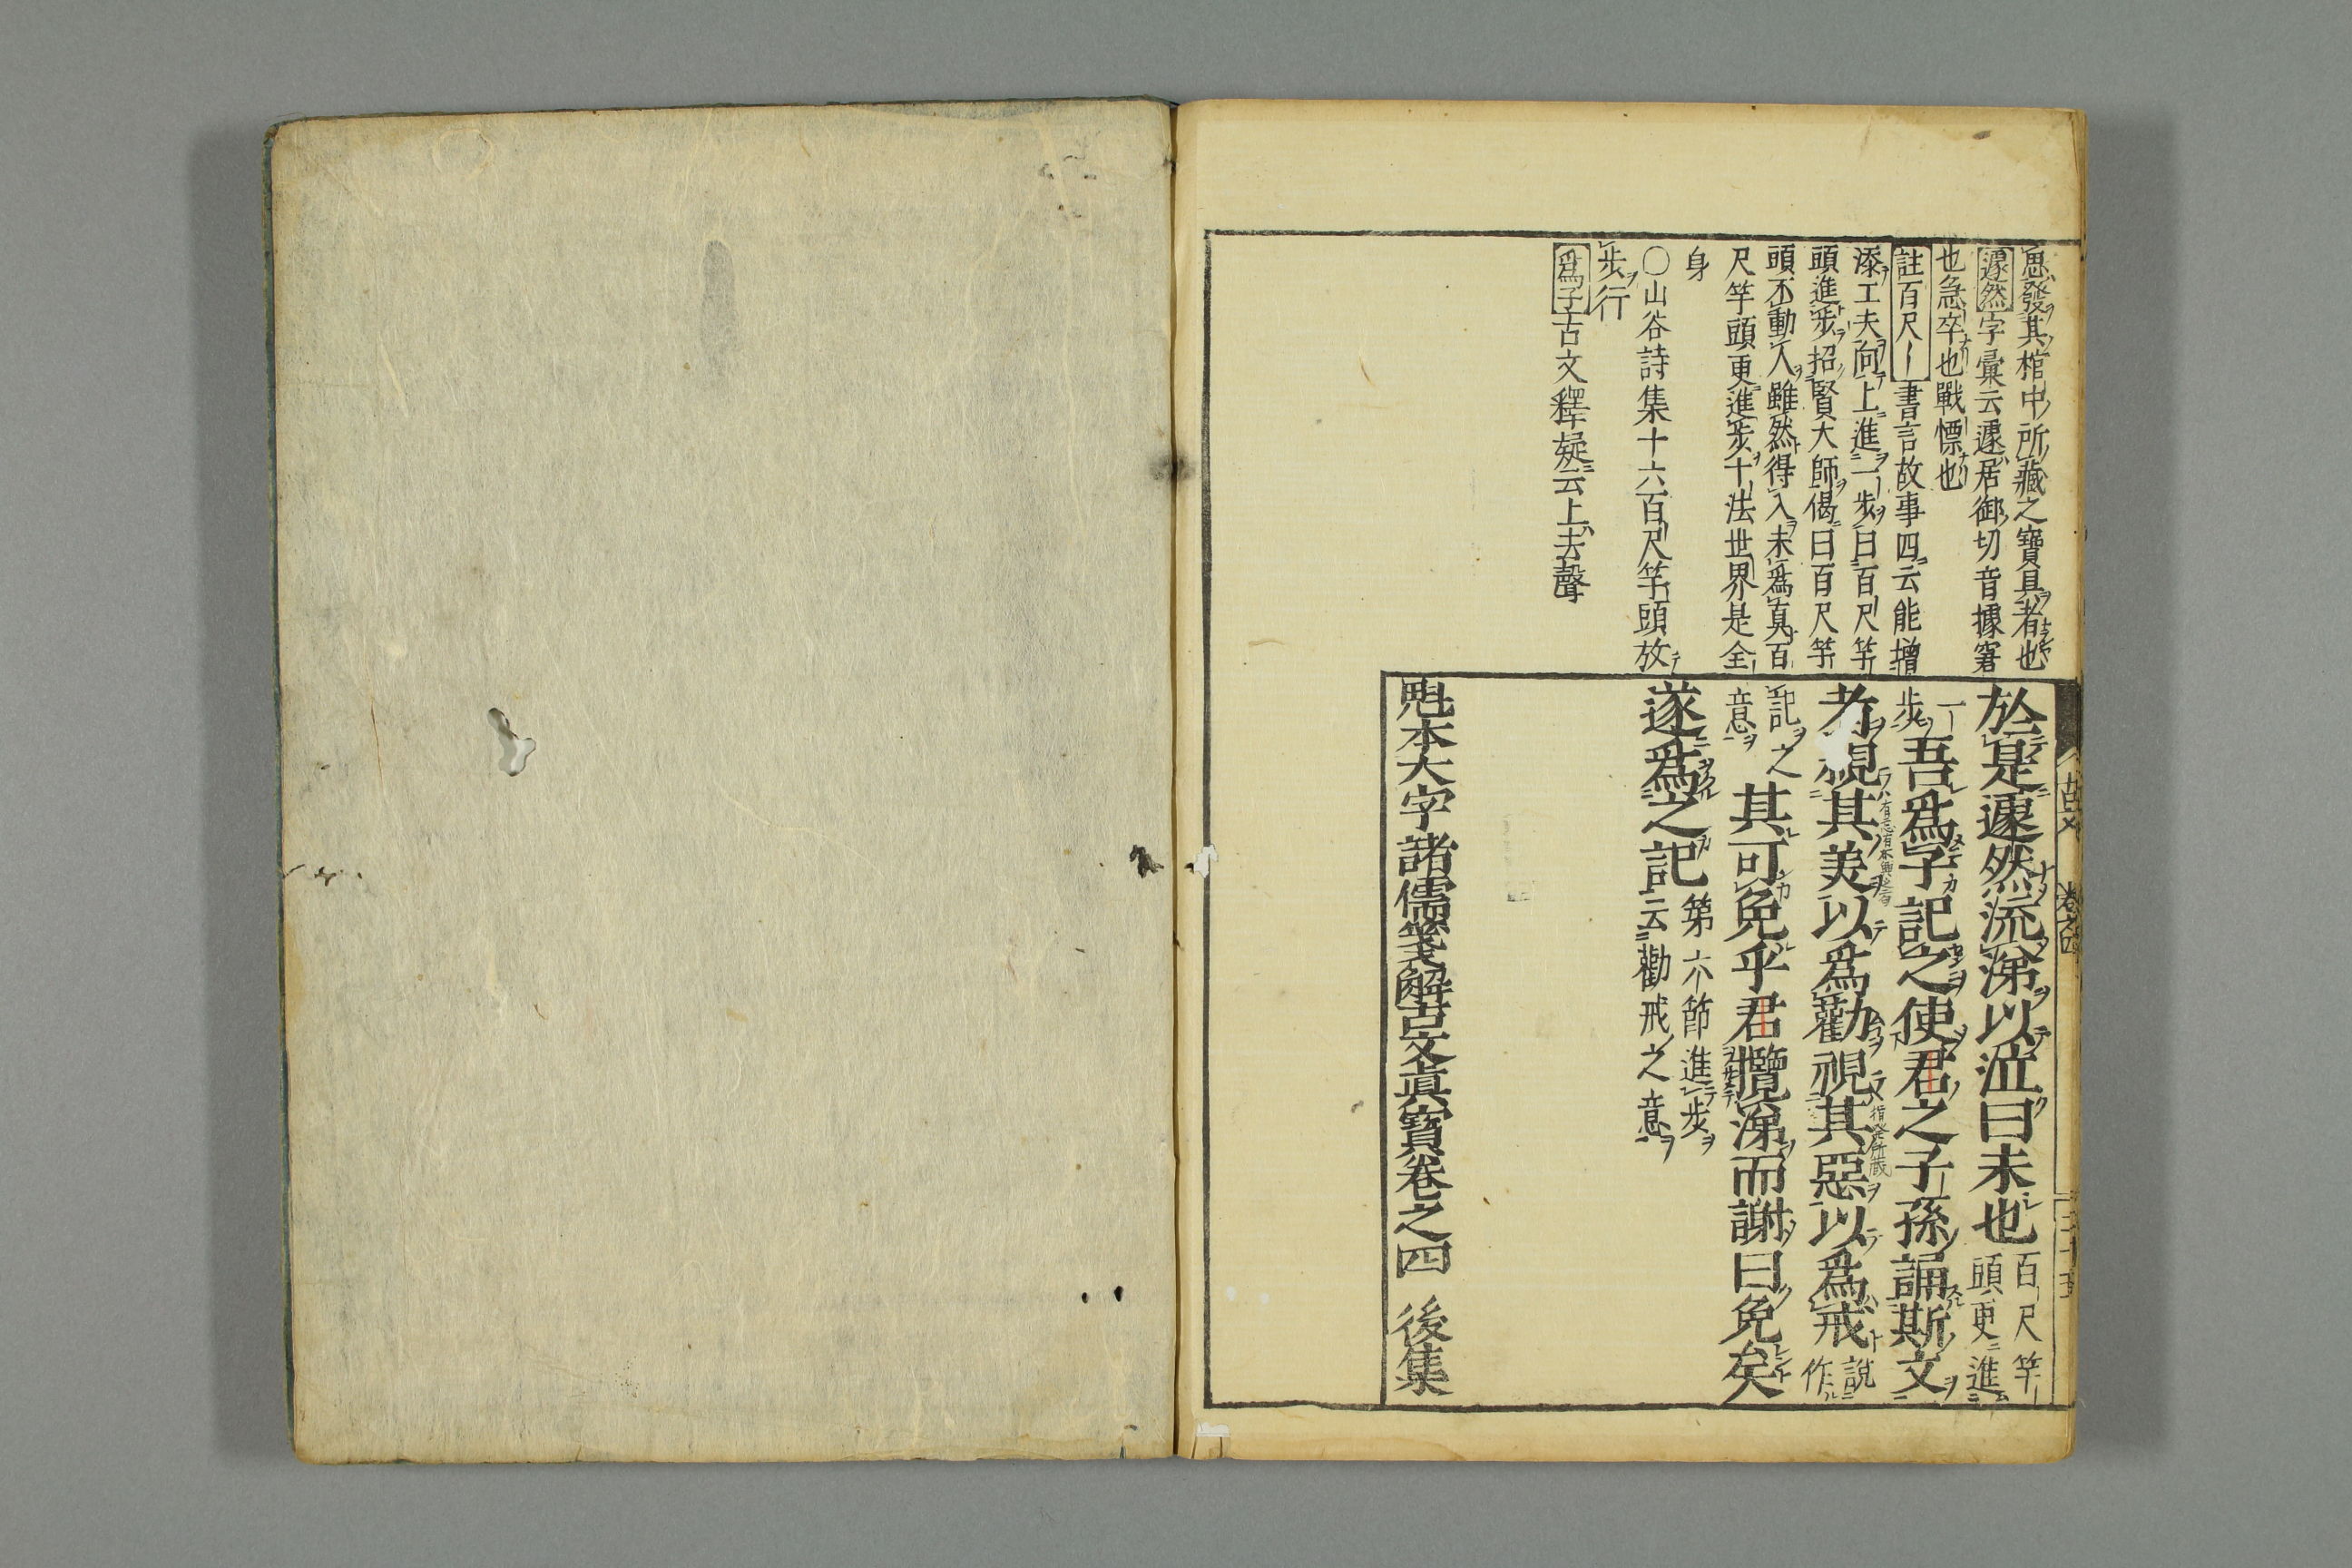 思發其棺中所藏之寶具者也
遽然字彙云遽居御切音據窘
也急卒也戰慄也
註百尺｜書言故事四云能增
添工夫向上進一步曰百尺竿
頭進步招賢大師偈曰百尺竿
頭不動人雖然得入未爲真百
尺竿頭更進步十法世界是全
身
〇山谷詩集十六百尺竿頭放
步行
爲子古文釋疑云上去聲
於是遽然流涕以泣曰未也百尺竿頭更進
一步吾爲子記之使君之子孫誦斯文
者視其美以爲勸視其惡以爲戒說作
記之意其可免乎君攬涕而謝曰免矣
遂爲之記第六節進步云勸戒之意
魁本大字諸儒箋解古文眞寶卷之四 後集
古文 卷之四